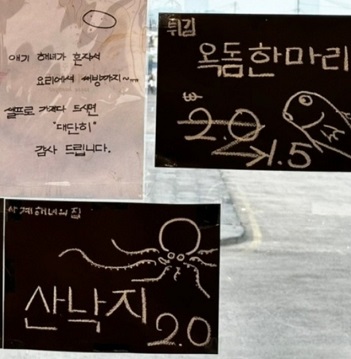 애기 해녀가 혼자서
요리에서 서빙까지~
셀프로 가져다 드시면
"대단히"
감사 드립니다.
튀김
옥돔한마리
2.0
→1.5
사계해녀의집
산낙지
2.0